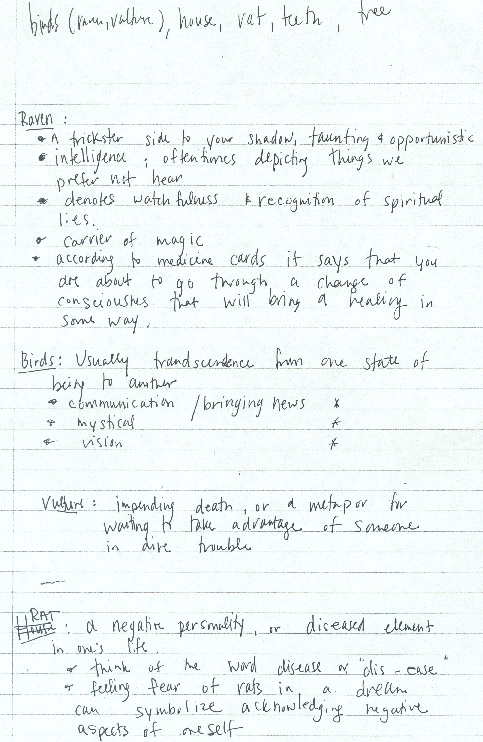 birds (raven, vulture), house, rat, teeth, tree
Raven :
• A trickster side to your shadow, taunting & opportunistic
• intelligence ; oftentimes depicting things we
prefer not hear
• denotes watchfulness & recognition of spiritual
lies.
• carrier of magic
• according to medicine cards it says that you
are about to go through a change of
consciousnes that will bring a healing in
some way.
Birds : Usually transcendence from one state of
being to another
• communication / bringing news *
• mystical *
• vision *
Vulture : impending death, or a metapor for
waiting to take advantage of someone
in dire trouble
—
RAT : a negative personality, or diseased element
in one's life.
• think of the word disease or "dis-ease"
• feeling fear of rats in a dream
can symbolize acknowledging negative
aspects of oneself